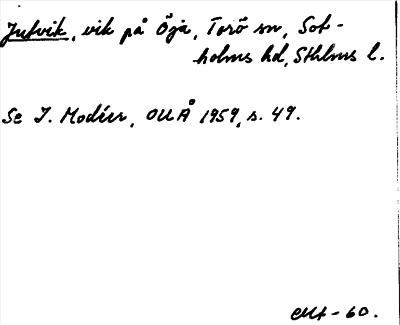 Jutvik, vik på Öja, Torö sn, Sot-
holms hd, Sthlms l.
Se I. Modéer, OUÅ 1959, s. 49.
-60.